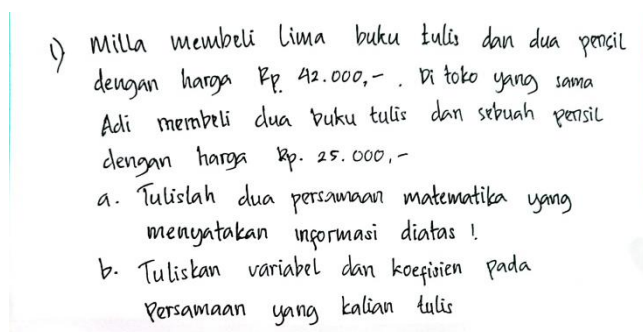 1) Milla membeli Lima buku tulis dan dua pensil
dengan harga Rp. 42.000,- . Di toko yang sama
Adi membeli dua buku tulis dan sebuah pensil
dengan harga Rp. 25.000,-
a. Tulislah dua persamaan matematika yang
menyatakan informasi diatas !
b. Tuliskan variabel dan koefisien pada
Persamaan yang kalian tulis